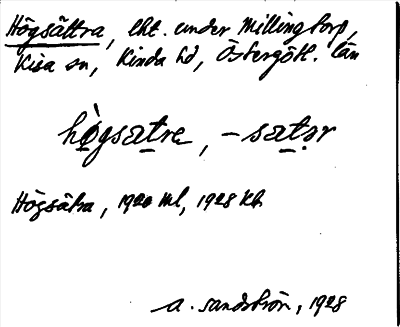 Högsättra, lht. under Millingtorp,
Kisa sn, Kinda hd, Östergötl. län
hò̱gsat̲re, -sat̲ər
Högsätra, 1920 ml, 1928 kb.
A. Sandström, 1928